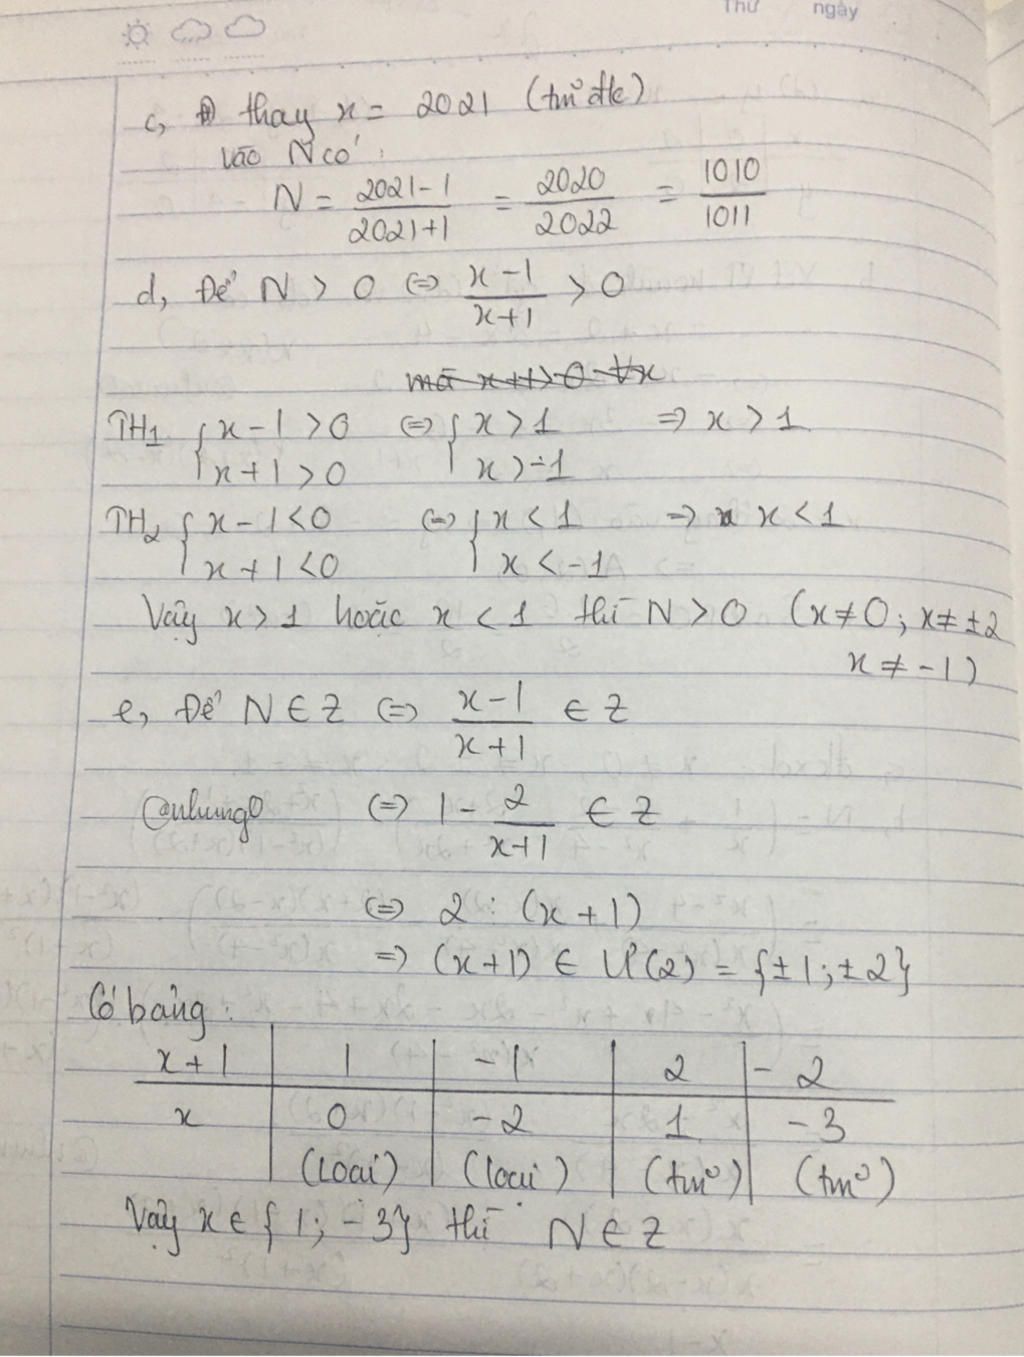 Thứ ngày
c, thay x = 2021 (tm đk)
vào N có :
N = (2021-1)/(2021+1) = 2020/2022 = 1010/1011
d, Để N > 0 <=> (x-1)/(x+1) > 0
mà x+1>0 ∀x
TH1 { x-1>0 <=> { x>1 => x>1
{ x+1>0 { x>-1
TH2 { x-1<0 <=> { x<1 => x<1
{ x+1<0 { x<-1
Vậy x>1 hoặc x<1 thì N>0 (x≠0; x≠±2
x≠-1)
e, Để N ∈ Z <=> (x-1)/(x+1) ∈ Z
@nhung <=> 1 - 2/(x+1) ∈ Z
<=> 2 ⋮ (x+1)
=> (x+1) ∈ Ư(2) = {±1; ±2}
Có bảng :
x+1 | 1 | -1 | 2 | -2
x | 0 | -2 | 1 | -3
(loại) | (loại) | (tm) | (tm)
Vậy x ∈ {1; -3} thì N ∈ Z